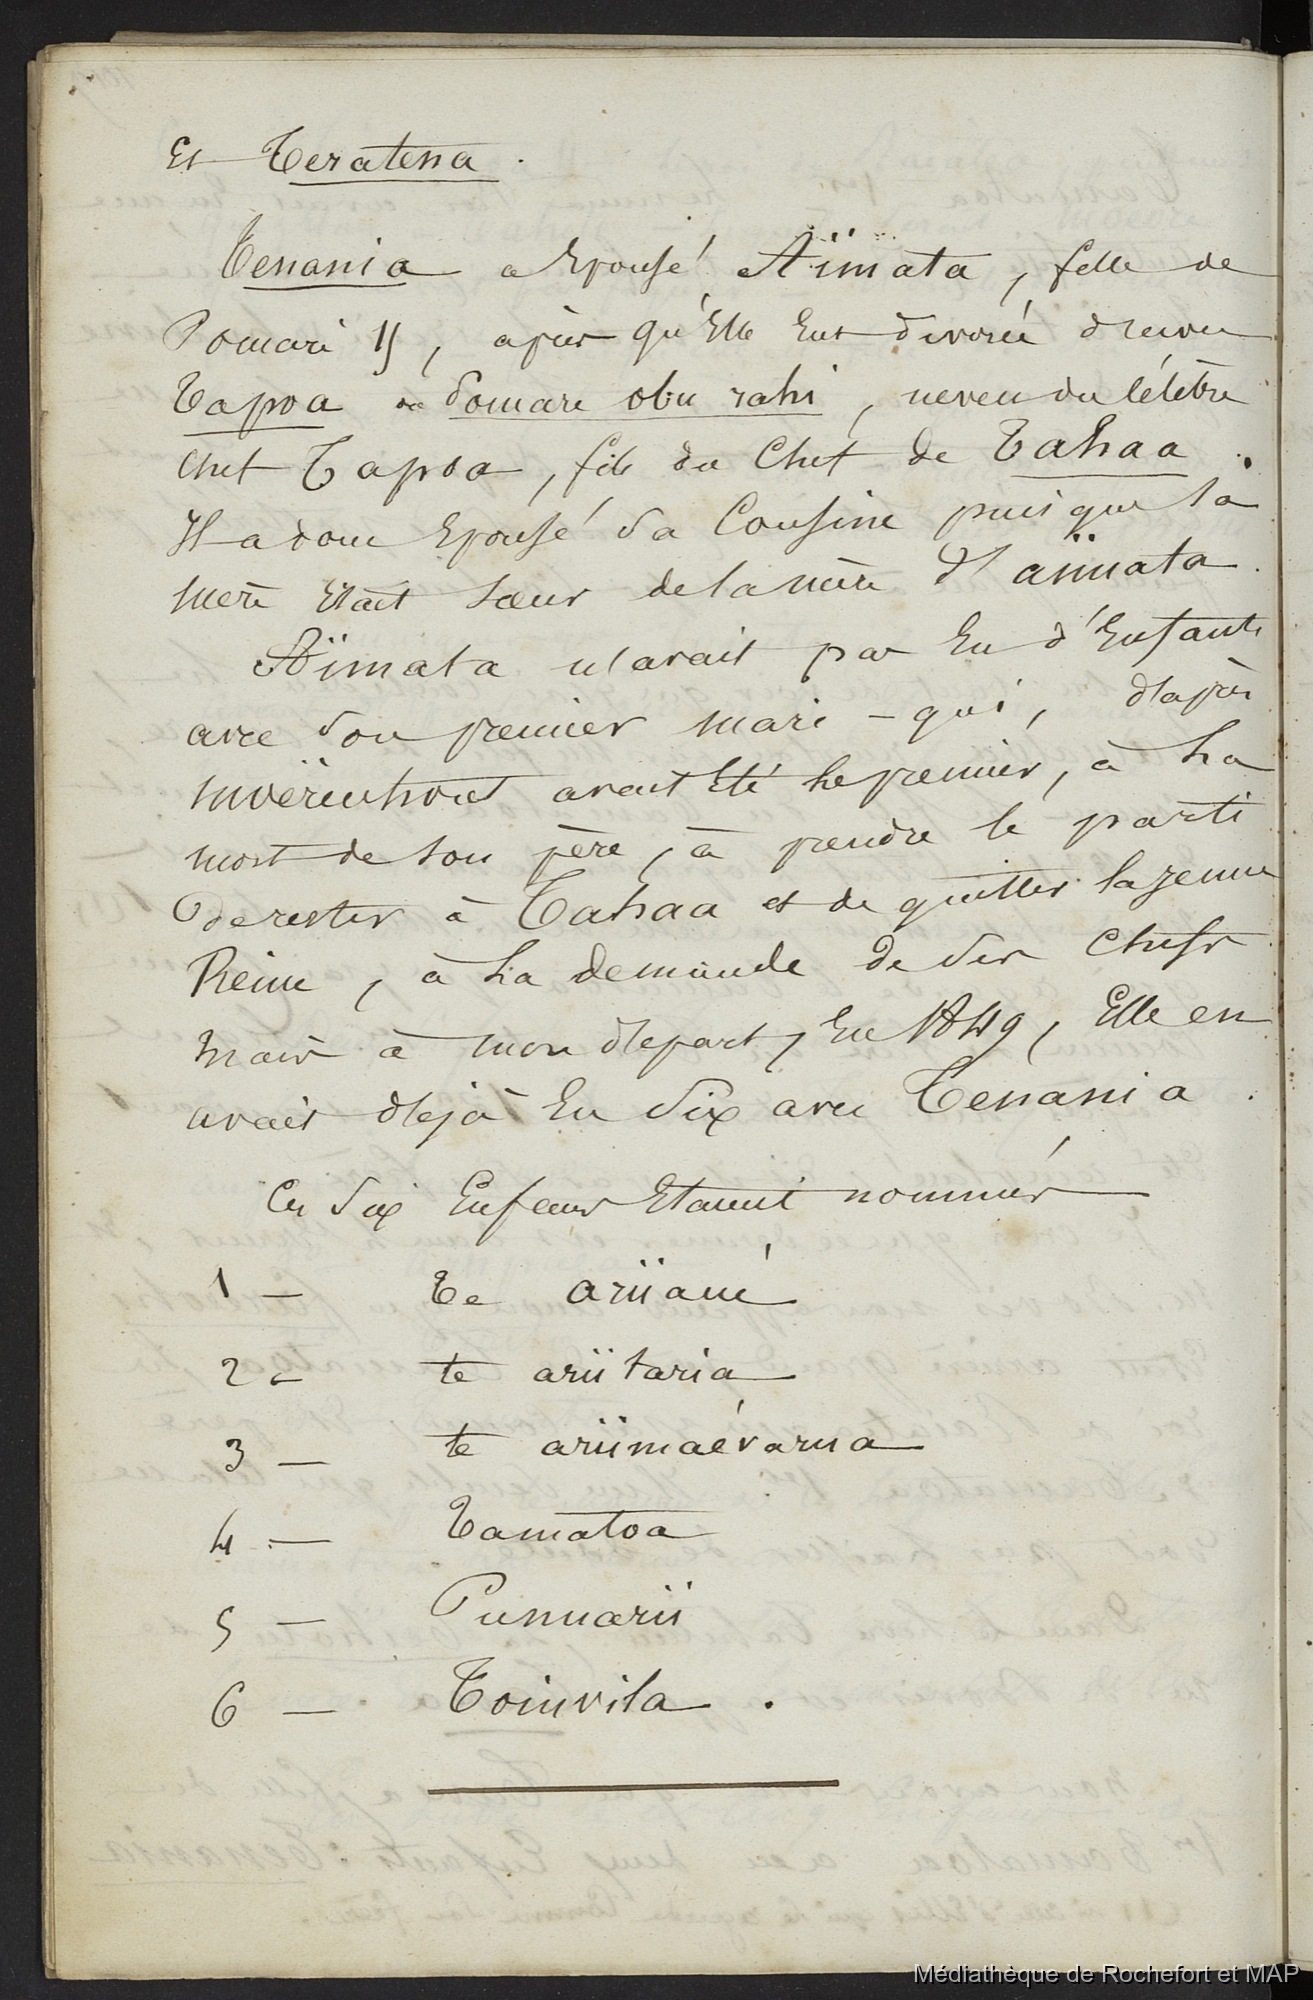 Et Teratena.
Tenania a Epousé Aïmata, fille de
Pomaré II, après qu'Elle Eut divorcé d'avec
Tapoa ou Pomare obu rahi, neveu du Célèbre
Chef Tapoa, fils du Chef de Tahaa.
Il a donc Epousé sa Cousine puisque sa
mère Etait soeur de la mère d'aïmata.
Aïmata n'avait pas Eu d'Enfants
avec son premier mari - qui, d'après
Moërenhout avait Eté le premier, à la
mort de son père, à prendre le parti
de rester à Tahaa et de quitter la jeune
Reine, à la demande de ses Chefs
mais à mon départ, En 1849, Elle en
avait déjà Eu Six avec Tenania.
Ces Six Enfans Etaient nommés
1 — Te ariiaué
2 — te ariitaria
3 — te ariimaévarua
4 — Tamatoa
5 — Punuarii
6 — Toinvita.
Médiathèque de Rochefort et MAP